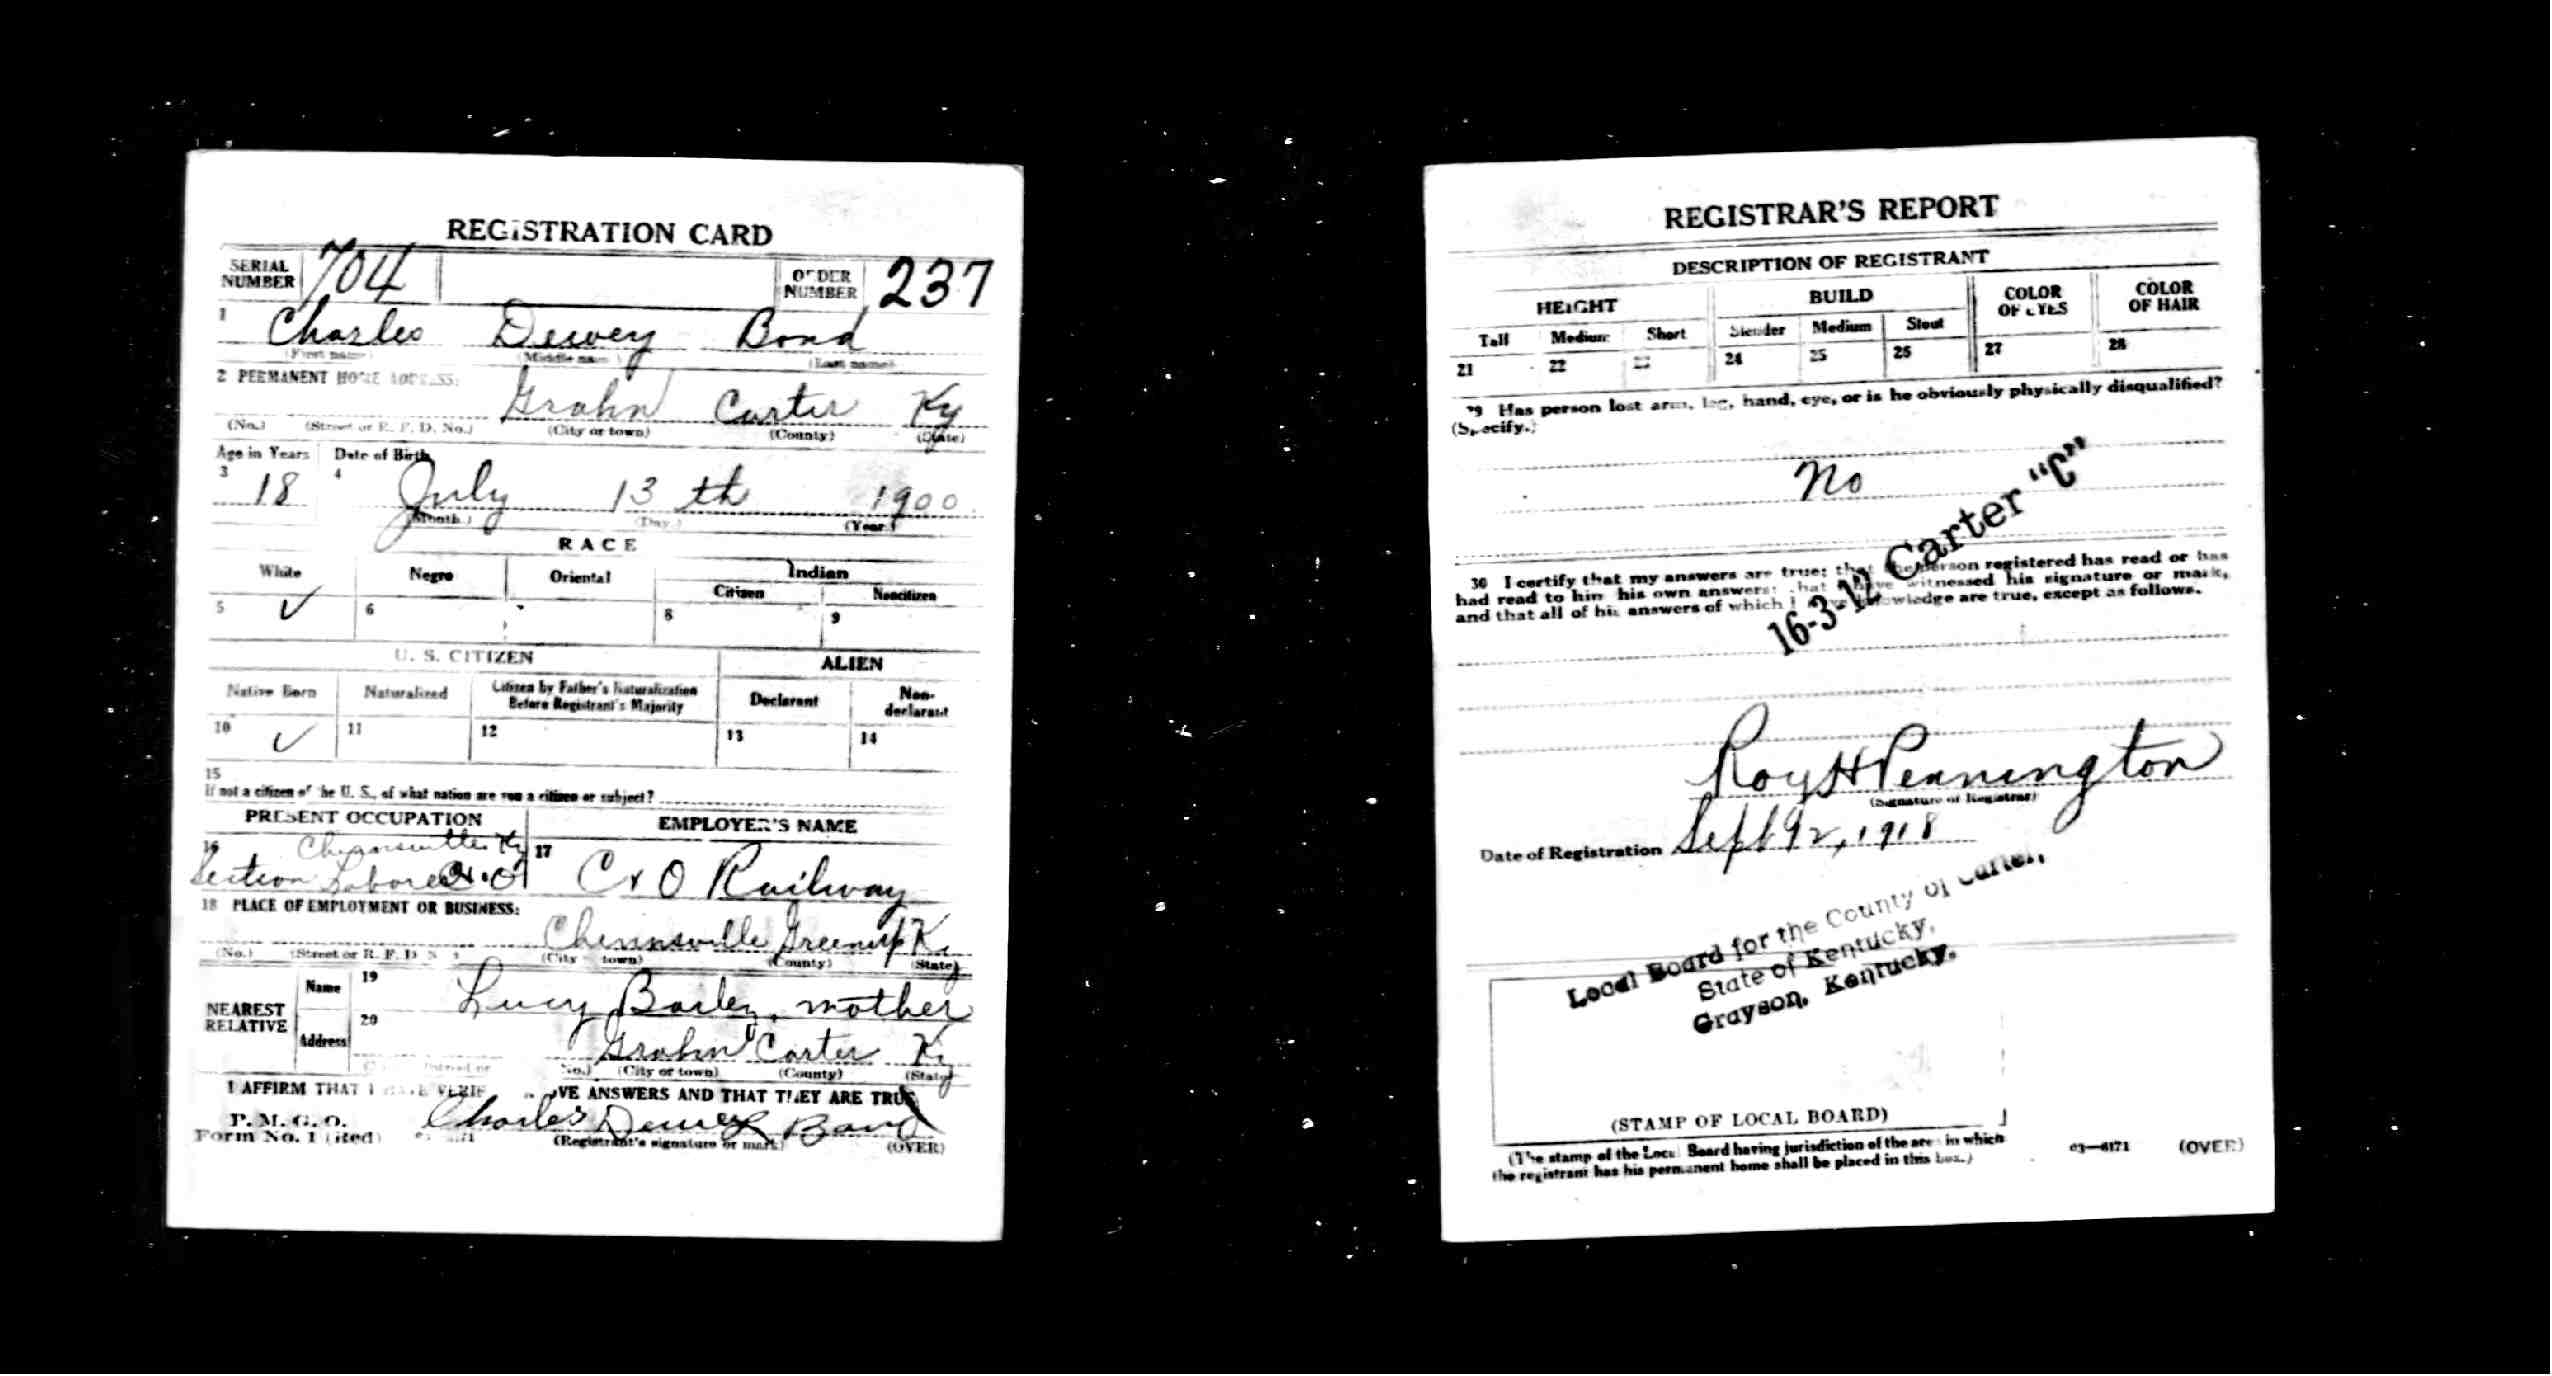 REGISTRATION CARD
SERIAL NUMBER 704 ORDER NUMBER 237
1 Charles Dewey Bond
(First name) (Middle name) (Last name)
2 PERMANENT HOME ADDRESS:
Grahn Carter Ky
(No.) (Street or R. F. D. No.) (City or town) (County) (State)
Age in Years Date of Birth
3 18 4 July 13 th 1900
(Month.) (Day.) (Year.)
RACE
White Negro Oriental Indian
Citizen Noncitizen
5 ✓ 6 8 9
U. S. CITIZEN ALIEN
Native Born Naturalized Citizen by Father's Naturalization Before Registrant's Majority Declarant Non-declarant
10 ✓ 11 12 13 14
15
If not a citizen of the U. S., of what nation are you a citizen or subject?
PRESENT OCCUPATION EMPLOYER'S NAME
16 Ky
Section Laborer 17 C & O Railway
18 PLACE OF EMPLOYMENT OR BUSINESS:
Greenup Ky
(No.) (Street or R. F. D. No.) (City or town) (County) (State)
NEAREST RELATIVE
Name 19 Lucy Bailey, mother
Address 20 Grahn Carter Ky
No.) (City or town) (County) (State)
I AFFIRM THAT I HAVE VERIF OVE ANSWERS AND THAT THEY ARE TRUE
P. M. G. O.
Form No. 1 (Red) Charles Dewey Bond
(Registrant's signature or mark) (OVER)
REGISTRAR'S REPORT
DESCRIPTION OF REGISTRANT
HEIGHT BUILD COLOR OF EYES COLOR OF HAIR
Tall Medium Short Slender Medium Stout
21 22 23 24 25 26 27 28
29 Has person lost arm, leg, hand, eye, or is he obviously physically disqualified?
(Specify.)
No
16-3-12 Carter "C"
30 I certify that my answers are true; that the person registered has read or has
had read to him his own answers; that I have witnessed his signature or mark,
and that all of his answers of which I have knowledge are true, except as follows.
Roy H Pennington
(Signature of Registrar)
Date of Registration Sept 12, 1918
Local Board for the County of Carter,
State of Kentucky,
Grayson, Kentucky.
(STAMP OF LOCAL BOARD)
(The stamp of the Local Board having jurisdiction of the area in which
the registrant has his permanent home shall be placed in this box.)
03—6171 (OVER)